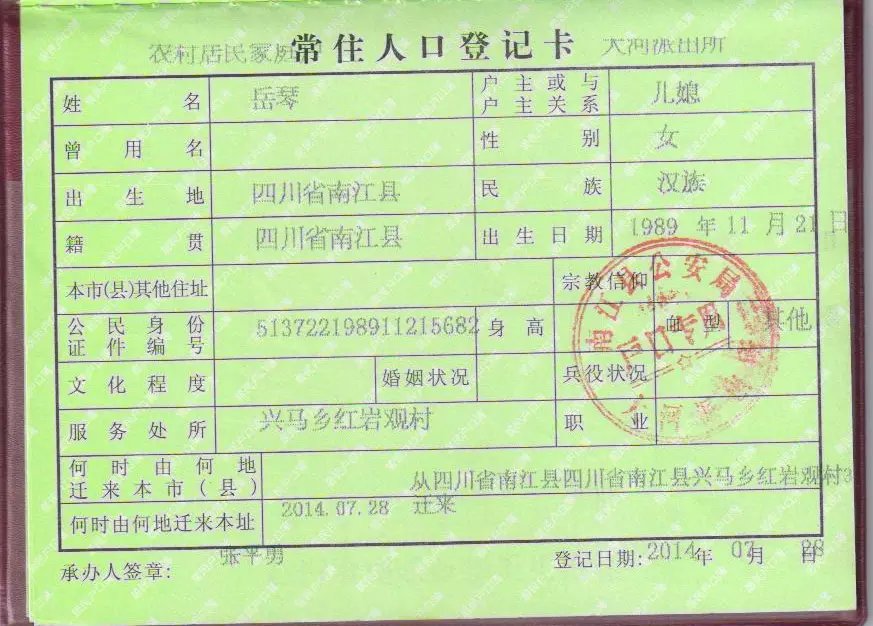 农村居民家庭 常住人口登记卡 大河派出所
姓名 岳琴 户主或与户主关系 儿媳
曾用名 性别 女
出生地 四川省南江县 民族 汉族
籍贯 四川省南江县 出生日期 1989 年 11 月 21 日
本市(县)其他住址 宗教信仰
公民身份证件编号 513722198911215682 身高 血型 其他
文化程度 婚姻状况 兵役状况
服务处所 兴马乡红岩观村 职业
何时由何地迁来本市(县) 从四川省南江县四川省南江县兴马乡红岩观村3
何时由何地迁来本址 2014.07.28 迁来
承办人签章: 张平勇 登记日期: 2014 年 07 月 28 日
南江县公安局
户口专用